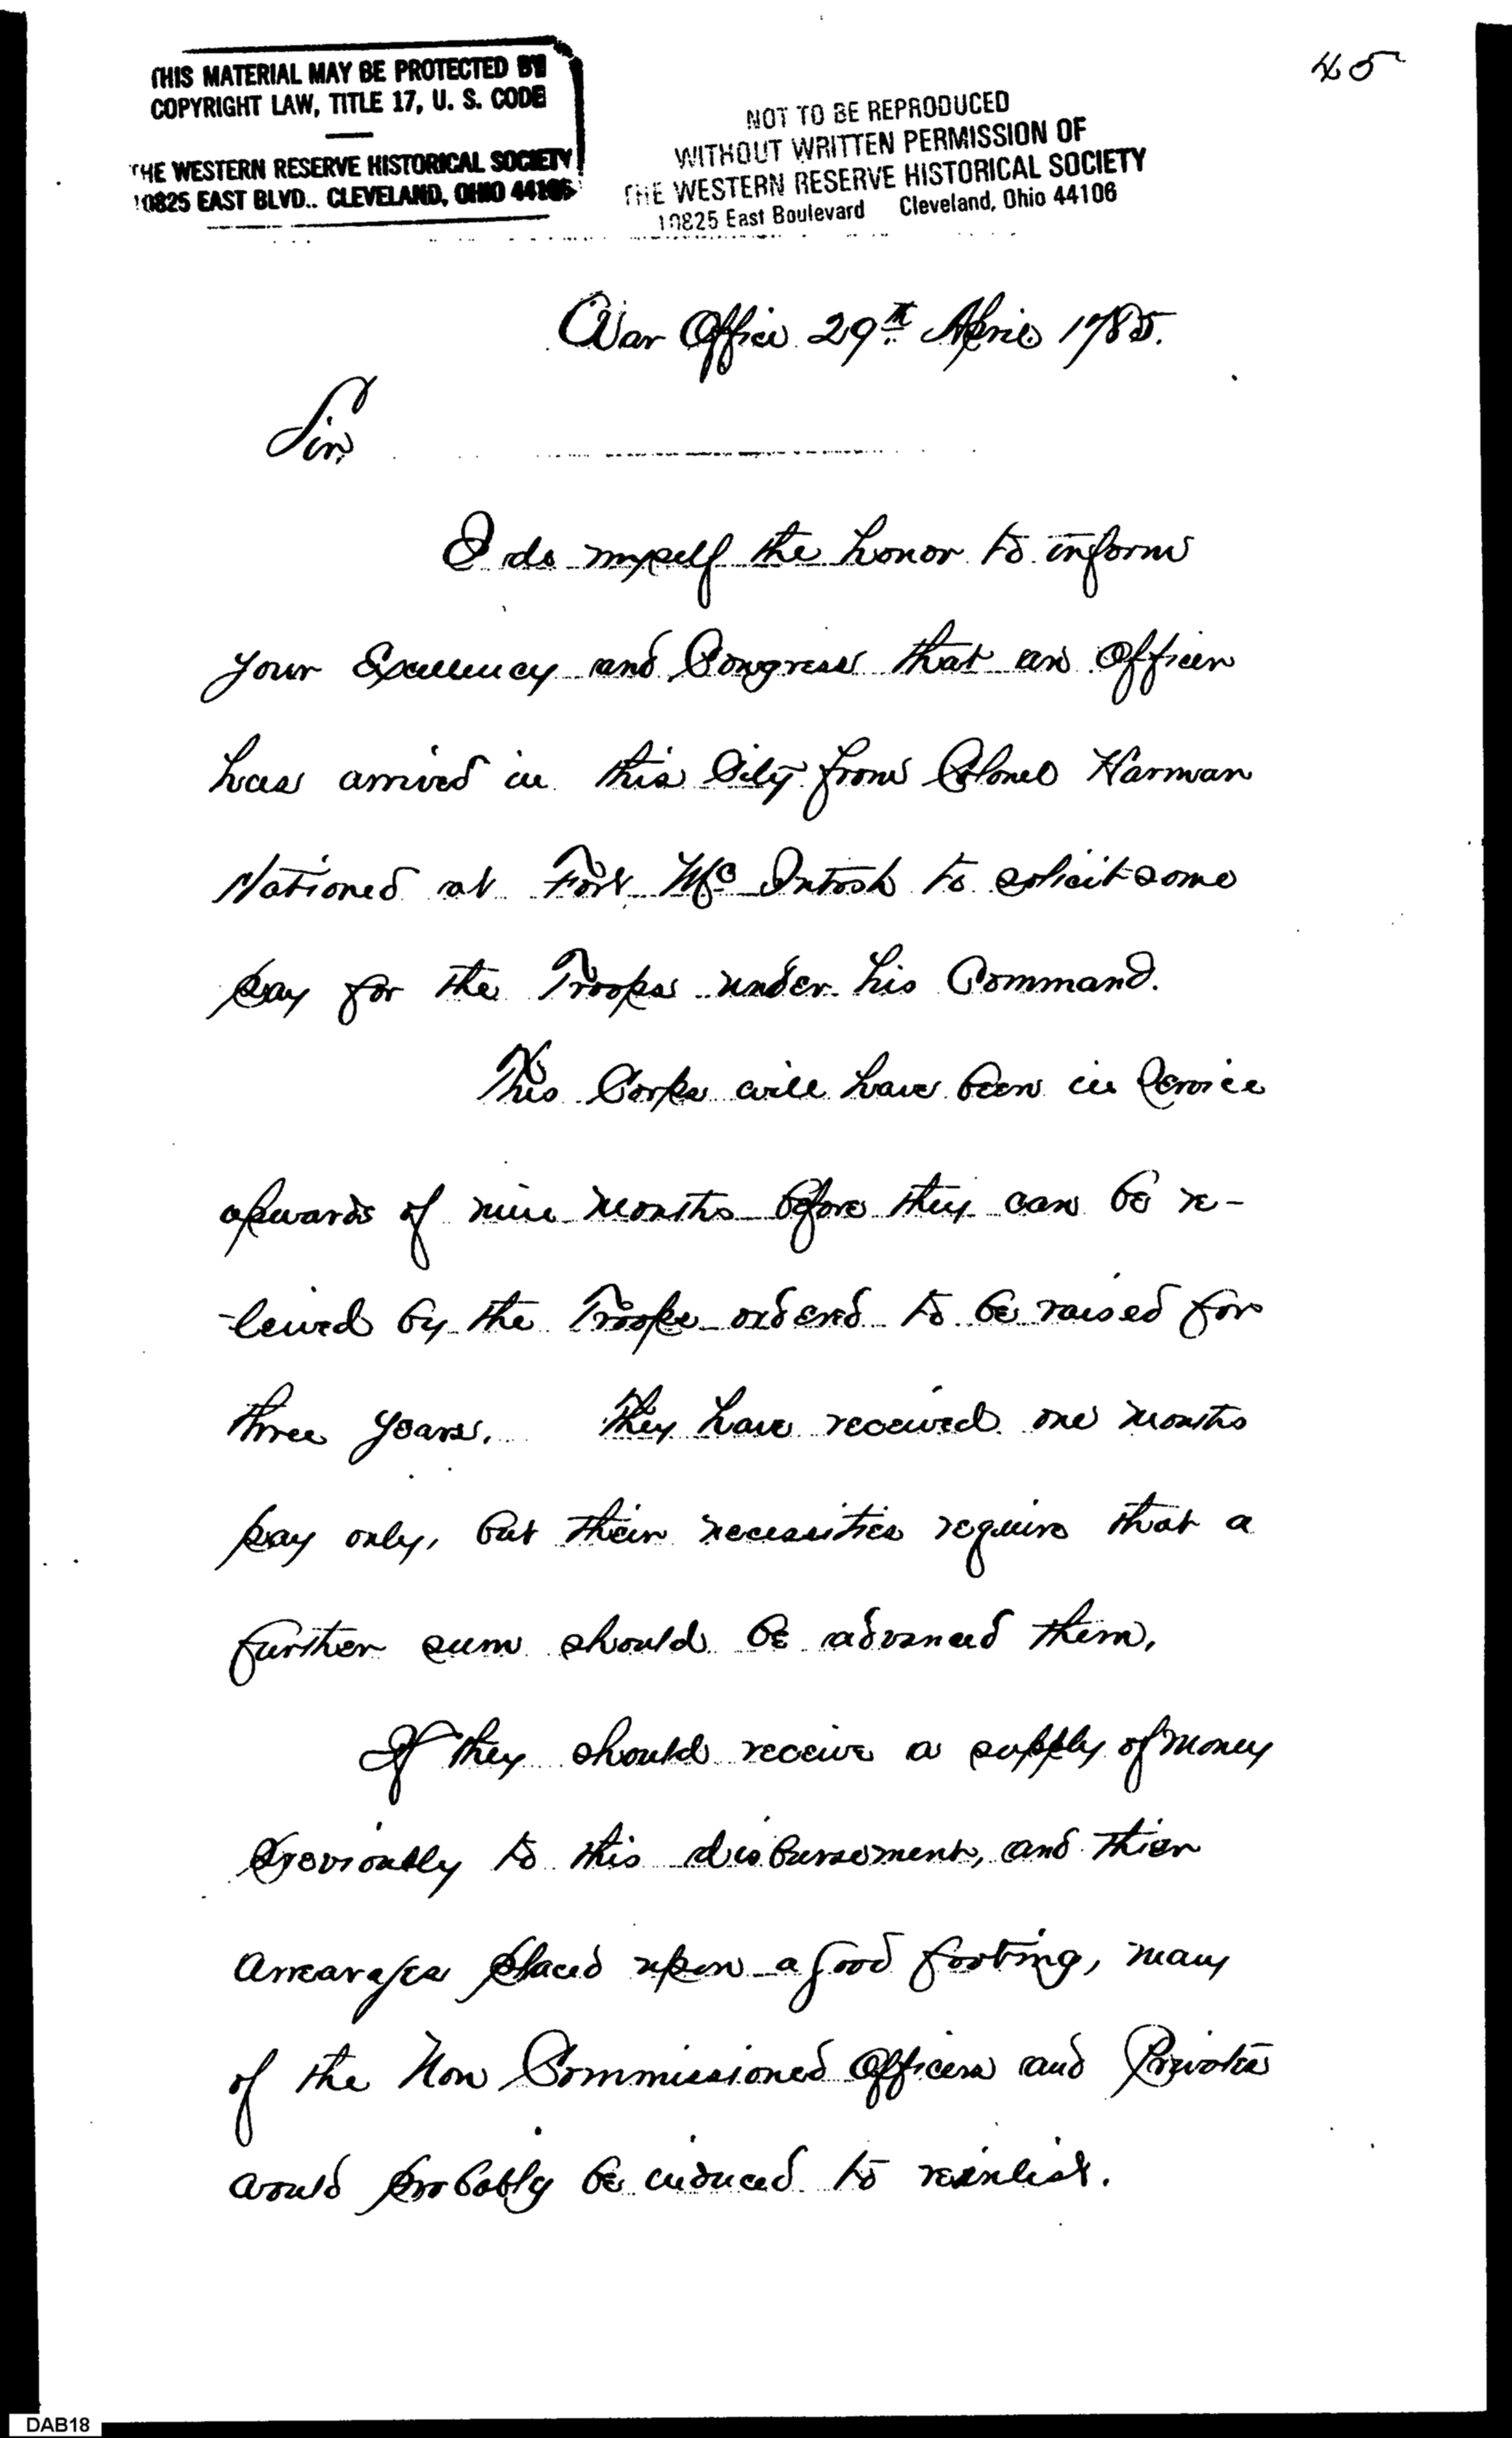 45
THIS MATERIAL MAY BE PROTECTED BY
COPYRIGHT LAW, TITLE 17, U. S. CODE
THE WESTERN RESERVE HISTORICAL SOCIETY
10825 EAST BLVD.. CLEVELAND, OHIO 44106
NOT TO BE REPRODUCED
WITHOUT WRITTEN PERMISSION OF
THE WESTERN RESERVE HISTORICAL SOCIETY
10825 East Boulevard Cleveland, Ohio 44106
War Office 29th April 1785.
Sir,
I do myself the honor to inform
your Excellency and Congress that an Officer
has arrived in this City from Colonel Harman
stationed at Fort Mc Intosh to solicit some
pay for the Troops under his Command.
This Corps will have been in Service
upwards of nine months before they can be re-
-leived by the Troops ordered to be raised for
three years. They have received one months
pay only, but their necessities require that a
further sum should be advanced them.
If they should receive a supply of money
previously to this disbursement, and thier
arrearages placed upon a good footing, many
of the Non Commissioned Officers and Privates
would probably be induced to reinlist.
DAB18